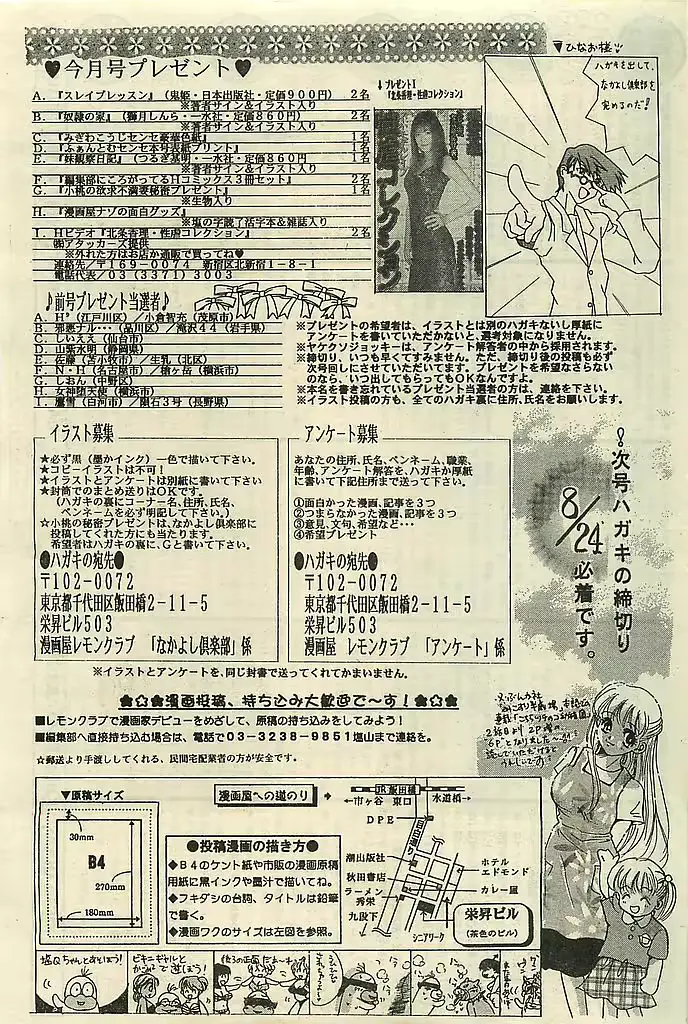 ♥今月号プレゼント♥
A.『スレイブレッスン』(鬼姫・日本出版社・定価900円) 2名
※著者サイン&イラスト入り
B.『奴隷の家』(獅月しんら・一水社・定価860円) 2名
※著者サイン&イラスト入り
C.『みぎわこうじセンセ豪華色紙』 1名
D.『ふぁんとむセンセ本号表紙プリント』 1名
E.『妹観察日記』(つるぎ基明・一水社・定価860円 1名
※著者サイン&イラスト入り
F.『編集部にころがってるHコミックス3冊セット』 2名
G.『小桃の欲求不満要秘密プレゼント』 1名
※生物入り
H.『漫画屋ナゾの面白グッズ』
※塩の字読了活字本&雑誌入り
I.Hビデオ『北条香理・性虐コレクション』 2名
㈱アタッカーズ提供
※外れた方はお店か通販で買ってね♥
連絡先/〒169-0074 新宿区北新宿1-8-1
電話代表/03(3371)3003
↓プレゼントI
『北条香理・性虐コレクション』
虐コレクション
▼ひなお様
ハガキを出して、
なかよし倶楽部を
覚めるのだ!
♪前号プレゼント当選者♪
A.H²(江戸川区)/小倉智充(茂原市)
B.邪悪ナル…(品川区)/滝沢44(岩手県)
C.しいええ(仙台市)
D.山紫水明(静岡県)
E.佐藤(苫小牧市)/生乳(北区)
F.N・H(名古屋市)/槍ヶ岳(横浜市)
G.しおん(中野区)
H.女神堕天使(横浜市)
I.鷹雪(白河市)/隕石3号(長野県)
※プレゼントの希望者は、イラストとは別のハガキないし厚紙に
アンケートを書いていただかないと、選考対象になりません。
※ヤクソジョッキーは、アンケート解答者の中から採用されます。
※締切り、いつも早くてすみません。ただ、締切り後の投稿も必ず
次号回しにさせていただいてます。プレゼントを希望なさらない
のなら、いつ出してもらってもOKなんですよ。
※本名を書き忘れているプレゼント当選者の方は、連絡を下さい。
※イラスト投稿の方も、全てのハガキ裏に住所、氏名をお願いします。
イラスト募集
★必ず黒(墨かインク)一色で描いて下さい。
★コピーイラストは不可!
★イラストとアンケートは別紙に書いて下さい
★封筒でのまとめ送りはOKです。
(ハガキの裏にコーナー名、住所、氏名、
ペンネームを必ず明記して下さい。)
☆小桃の秘密プレゼントは、なかよし倶楽部に
投稿してくれた方にも当たります。
希望者はハガキの裏に、Gと書いて下さい。
●ハガキの宛先●
〒102-0072
東京都千代田区飯田橋2-11-5
栄昇ビル503
漫画屋レモンクラブ 「なかよし倶楽部」係
アンケート募集
あなたの住所、氏名、ペンネーム、職業、
年齢、アンケート解答を、ハガキか厚紙
に書いて下記住所まで送って下さい。
①面白かった漫画、記事を3つ
②つまらなかった漫画、記事を3つ
③意見、文句、希望など…
④希望プレゼント
●ハガキの宛先●
〒102-0072
東京都千代田区飯田橋2-11-5
栄昇ビル503
漫画屋 レモンクラブ 「アンケート」係
!次号ハガキの締切り
8/24必着です。
※イラストとアンケートを、同じ封書で送ってくれてかまいません。
★✩★漫画投稿、持ち込み大歓迎で〜す!★✩★
■レモンクラブで漫画家デビューをめざして、原稿の持ち込みをしてみよう!
■編集部へ直接持ち込む場合は、電話で03-3238-9851塩山まで連絡を。
☆郵送より手渡ししてくれる、民間宅配業者の方が安全です。
▼原稿サイズ
30mm
B4
270mm
180mm
漫画屋への道のり
●投稿漫画の描き方●
◆B4のケント紙や市販の漫画原稿
用紙に黒インクや墨汁で描いてね。
◆フキダシの台詞、タイトルは鉛筆
で書く。
◆漫画ワクのサイズは左図を参照。
JR飯田橋
←市ヶ谷 東口 水道橋→
DPE
目白通り
潮出版社
秋田書店
ラーメン
秀栄
九段下
シニアワーク
ホテル
エドモンド
カレー屋
栄昇ビル
(茶色のビル)
塩Qちゃんとあそぼう!
ビキニギャルと